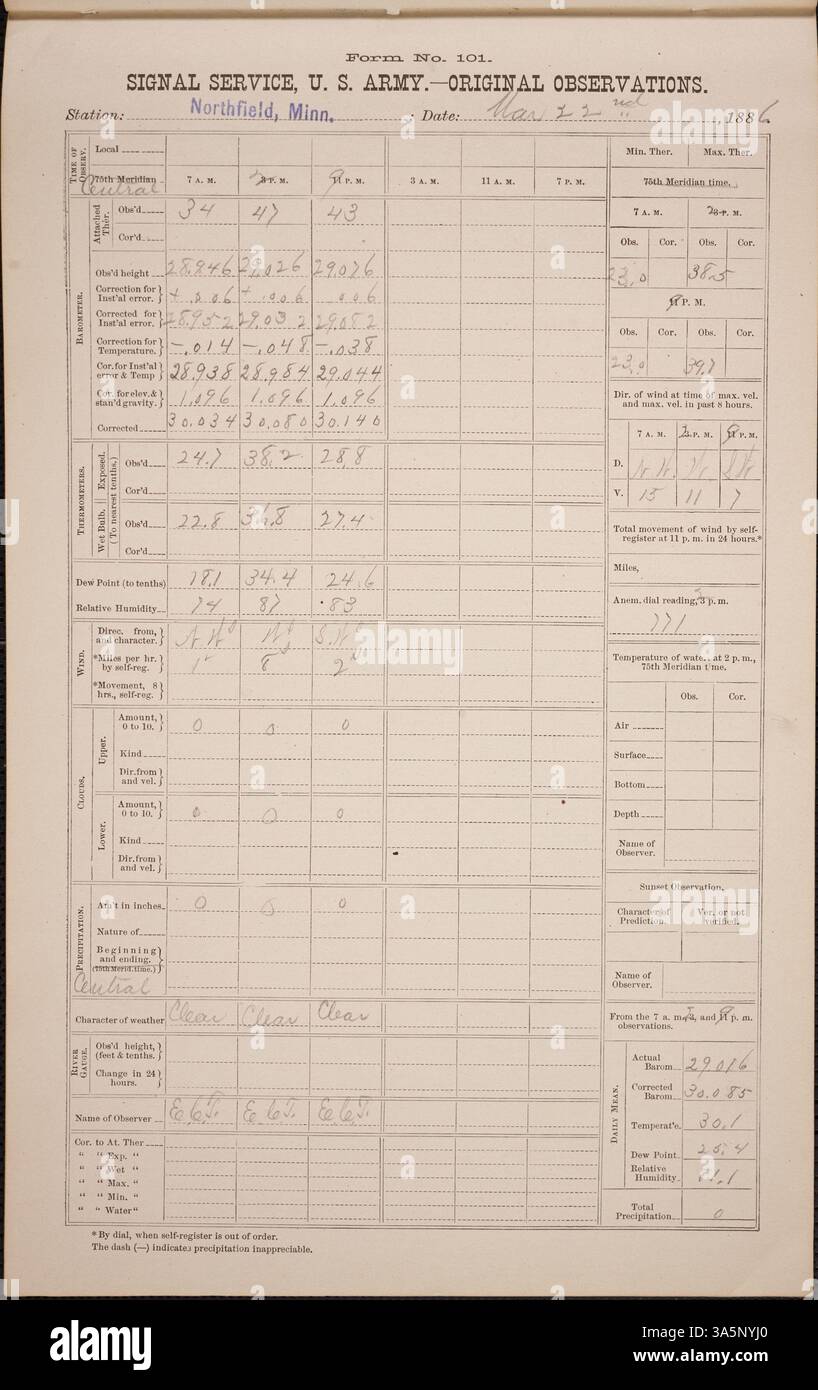 Form No. 101.
SIGNAL SERVICE, U. S. ARMY.—ORIGINAL OBSERVATIONS.
Station: Northfield, Minn. ; Date: Mar 22nd, 1886
TIME OF OBSERV.
Local
75th Meridian 7 A. M. 2 3 P. M. 9 11 P. M. 3 A. M. 11 A. M. 7 P. M.
Central
BAROMETER.
Attached Ther.
Obs'd 34 47 43
Cor'd
Obs'd height 28.946 29.026 29.076
Correction for Inst'al error. + .006 + .006 .006
Corrected for Inst'al error. 28.952 29.032 29.082
Correction for Temperature. —.014 —.048 —.038
Cor. for Inst'al error & Temp 28.938 28.984 29.044
Cor. for elev. & stan'd gravity. 1.096 1.096 1.096
Corrected 30.034 30.080 30.140
THERMOMETERS.
(To nearest tenths.)
Exposed.
Obs'd 24.7 38.2 28.8
Cor'd
Wet Bulb.
Obs'd 22.8 36.8 27.4
Cor'd
Dew Point (to tenths) 18.1 34.4 24.6
Relative Humidity 74 87 83
WIND.
Direc. from, and character. N.W. W S.W.
*Miles per hr. by self-reg. 8 2
*Movement, 8 hrs., self-reg.
CLOUDS.
Upper.
Amount, 0 to 10. 0 0 0
Kind
Dir. from and vel.
Lower.
Amount, 0 to 10. 0 0 0
Kind
Dir. from and vel.
PRECIPITATION.
Am't in inches. 0 0 0
Nature of
Beginning and ending. (75th Merid. time.)
Central
Character of weather Clear Clear Clear
RIVER GAUGE.
Obs'd height, (feet & tenths.)
Change in 24 hours.
Name of Observer E.C.T. E.C.T. E.C.T.
Cor. to At. Ther
" " Exp. "
" " Wet "
" " Max. "
" " Min. "
" " Water "
*By dial, when self-register is out of order.
The dash (—) indicates precipitation inappreciable.
Min. Ther. Max. Ther.
75th Meridian time.
7 A. M. 2 3 P. M.
Obs. Cor. Obs. Cor.
23.0 38.5
9 11 P. M.
Obs. Cor. Obs. Cor.
23.0 39.7
Dir. of wind at time of max. vel. and max. vel. in past 8 hours.
7 A. M. 2 3 P. M. 9 11 P. M.
D. N.W. W. S.W.
V. 15 11 7
Total movement of wind by self-register at 11 p. m. in 24 hours.*
Miles,
Anem. dial reading, 3 p. m.
771
Temperature of water at 2 p. m., 75th Meridian time.
Obs. Cor.
Air
Surface
Bottom
Depth
Name of Observer.
Sunset Observation.
Character of Prediction. Ver. or not verified.
Name of Observer.
From the 7 a. m., 3, and 11 p. m. observations.
DAILY MEAN.
Actual Barom 29.016
Corrected Barom. 30.085
Temperat'e. 30.1
Dew Point 25.4
Relative Humidity 81.1
Total Precipitation 0
alamy
Image ID: 3A5NYJ0
www.alamy.com